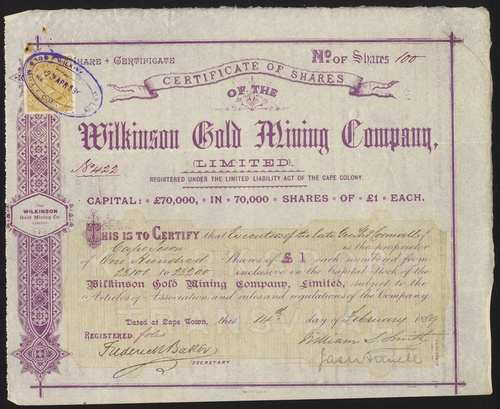 SHARE CERTIFICATE
No. OF Shares 100
CERTIFICATE OF SHARES
OF THE
Wilkinson Gold Mining Company,
(LIMITED).
No. 422
REGISTERED UNDER THE LIMITED LIABILITY ACT OF THE CAPE COLONY.
CAPITAL: £70,000, IN 70,000 SHARES OF £1 EACH.
THE
WILKINSON
Gold Mining Co.
LIMITED
THIS IS TO CERTIFY that Executors of the late
Capetown is the proprietor
of One Hundred Shares of £1 each numbered from
25101 to 25200 inclusive in the Capital Stock of the
Wilkinson Gold Mining Company, Limited, subject to the
Articles of Association and rules and regulations of the Company
Dated at Cape Town, this 14th day of February 1889
REGISTERED folio
William S Smith
Frederick Baker
SECRETARY